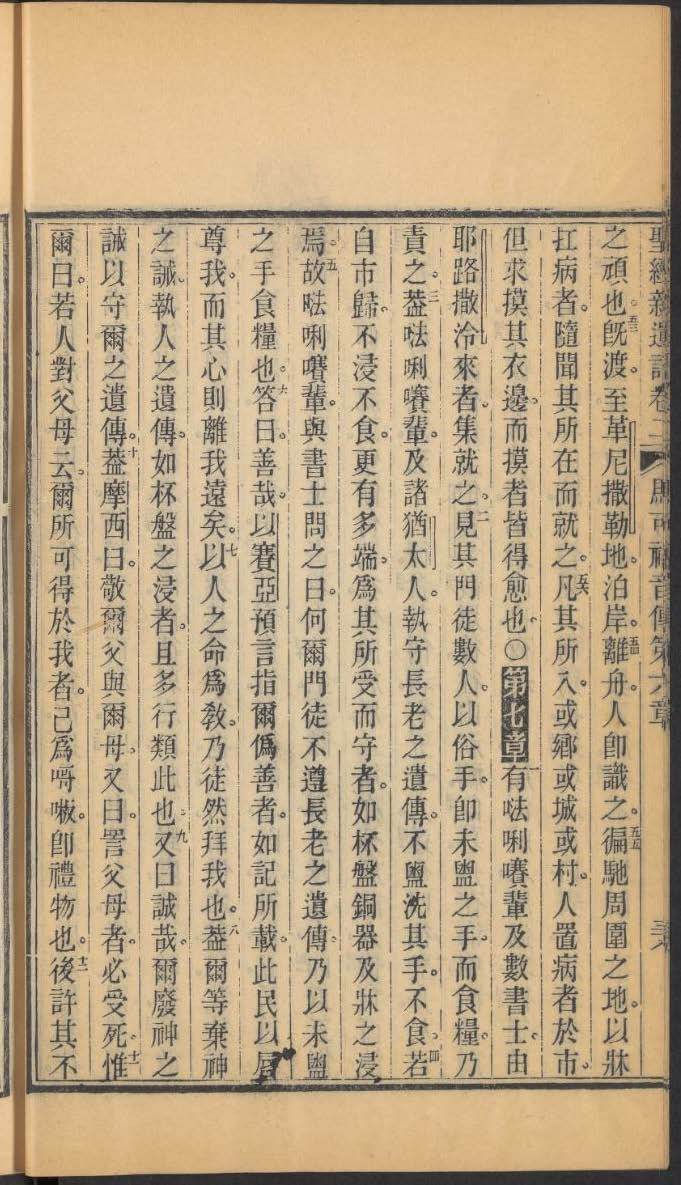 聖經新遺詔卷二 馬可福音傳第六章 三六
之頑也。五三既渡。至革尼撒勒地。泊岸。五四離舟。人卽識之。五五徧馳周圍之地。以牀
扛病者。隨聞其所在而就之。五六凡其所入。或鄉或城或村。人置病者於市。
但求摸其衣邊。而摸者皆得愈也。○第七章一有呿唎㘔輩及數書士。由
耶路撒冷來者。集就之。二見其門徒數人。以俗手。卽未盥之手。而食糧。乃
責之。三葢呿唎㘔輩。及諸猶太人。執守長老之遺傳。不盥洗其手。不食。四若
自市歸。不浸不食。更有多端。爲其所受而守者。如杯盤銅器及牀之浸
焉。五故呿唎㘔輩。與書士問之曰。何爾門徒不遵長老之遺傳。乃以未盥
之手食糧也。六答曰。善哉。以賽亞預言指爾僞善者。如記所載。此民以唇
尊我。而其心則離我遠矣。七以人之命爲敎。乃徒然拜我也。八葢爾等棄神
之誡。執人之遺傳。如杯盤之浸者。且多行類此也。九又曰。誠哉。爾廢神之
誡。以守爾之遺傳。十葢摩西曰。敬爾父與爾母。又曰。詈父母者。必受死。十一惟
爾曰。若人對父母云。爾所可得於我者。已爲㗿㘑。卽禮物也。十二後許其不